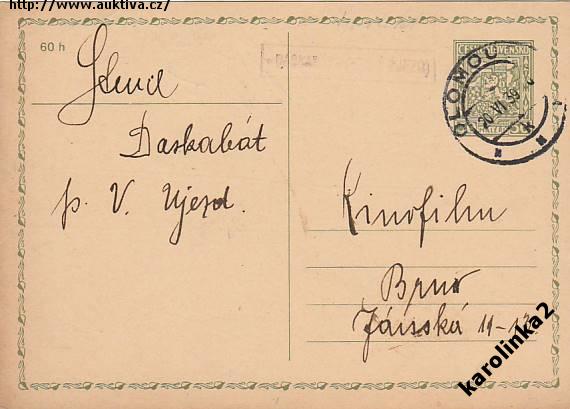 http://www.auktiva.cz/
60 h
ČESKOSLOVENSKO
OLOMOUC
20.VI.39
Daskabát
p. V. Ujezd.
Kinofilm
Brno
Jánská 19-13
karolinka2